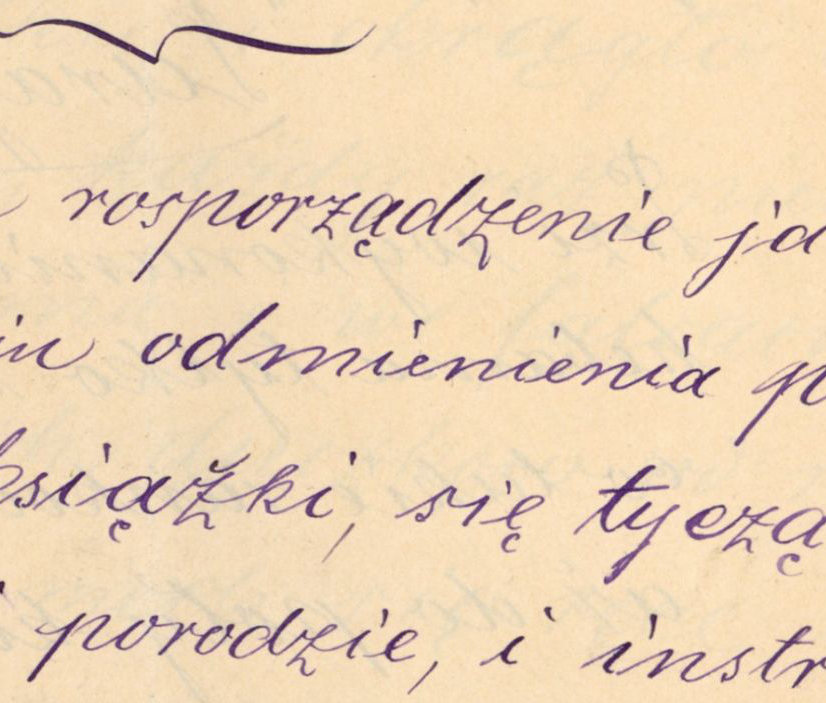 rosporządzenie ja
iu odmienienia po
książki, się tyczą
porodzie, i instr